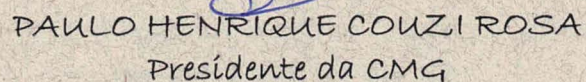 PAULO HENRIQUE COUZI ROSA
Presidente da CMG